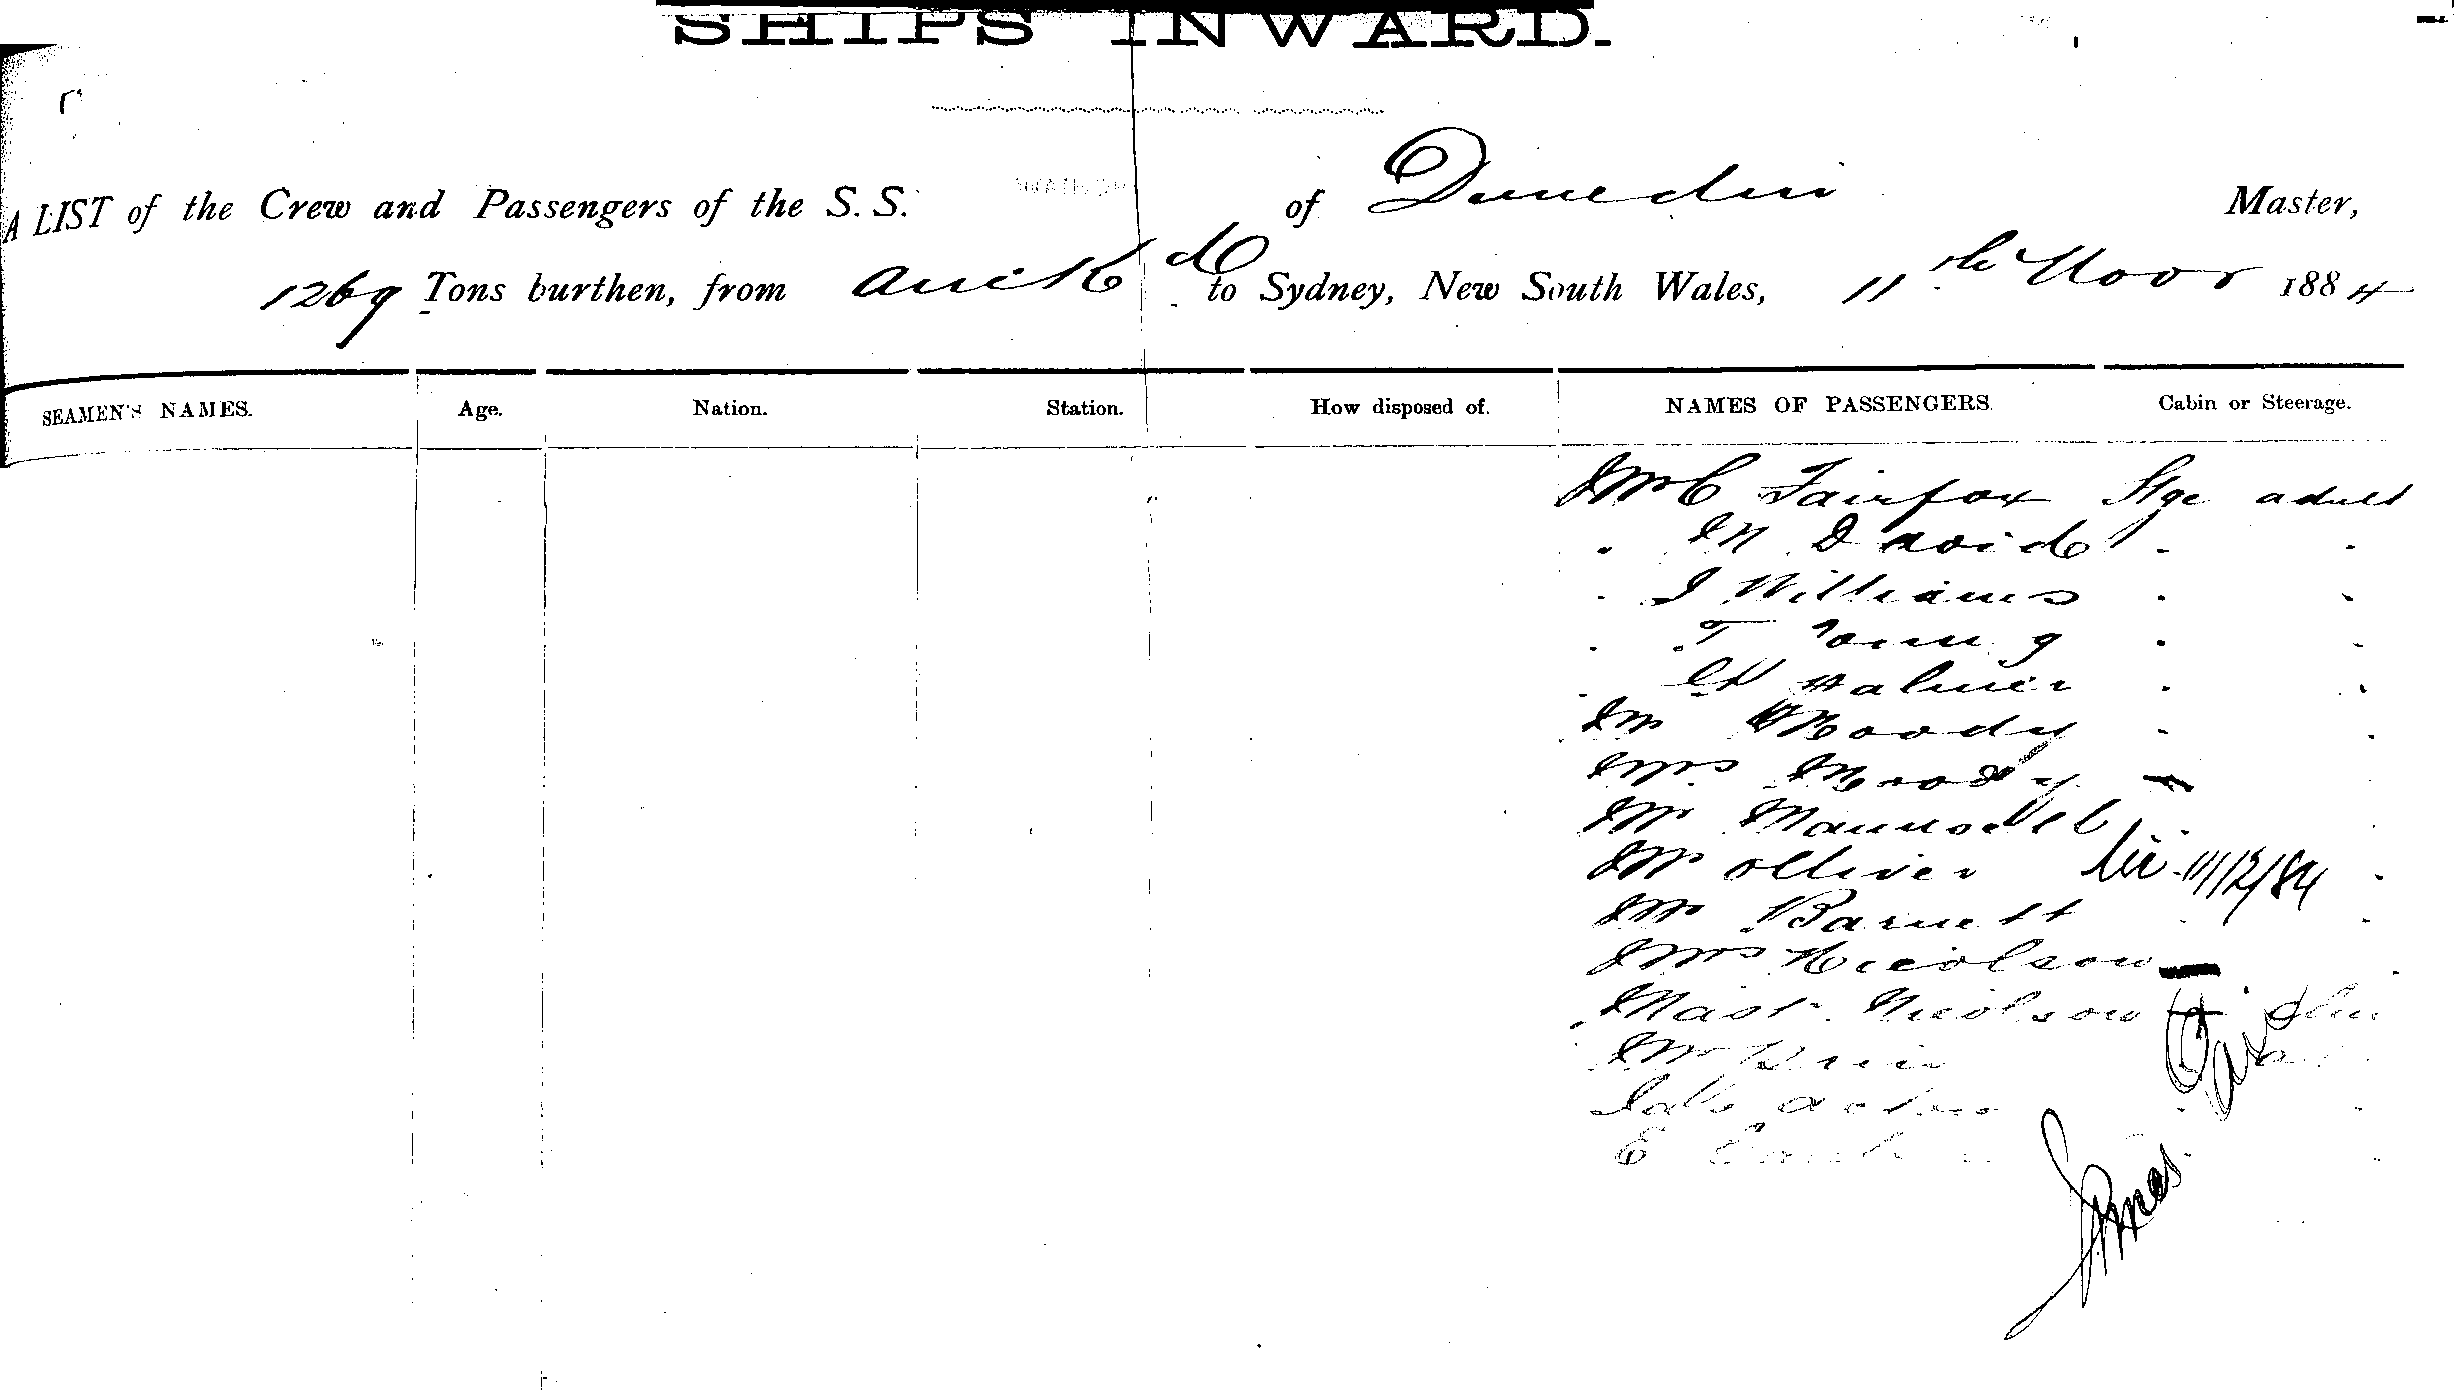 SHIPS INWARD.
A LIST of the Crew and Passengers of the S. S. of Dunedin Master,
1269 Tons burthen, from Auckd to Sydney, New South Wales, 11th Novr 1884
SEAMEN'S NAMES. Age. Nation. Station. How disposed of. NAMES OF PASSENGERS. Cabin or Steerage.
Mr C Fairfox Stge adult
" M David " "
" J Williams " "
" T Young " "
" Palmer " "
Mr Moody " "
Mrs Moody
Mr
Mr Olliver 11/12/84 "
Mr Barnett "
Mrs Nicolson "
Mast. Nicolson
Mr
E